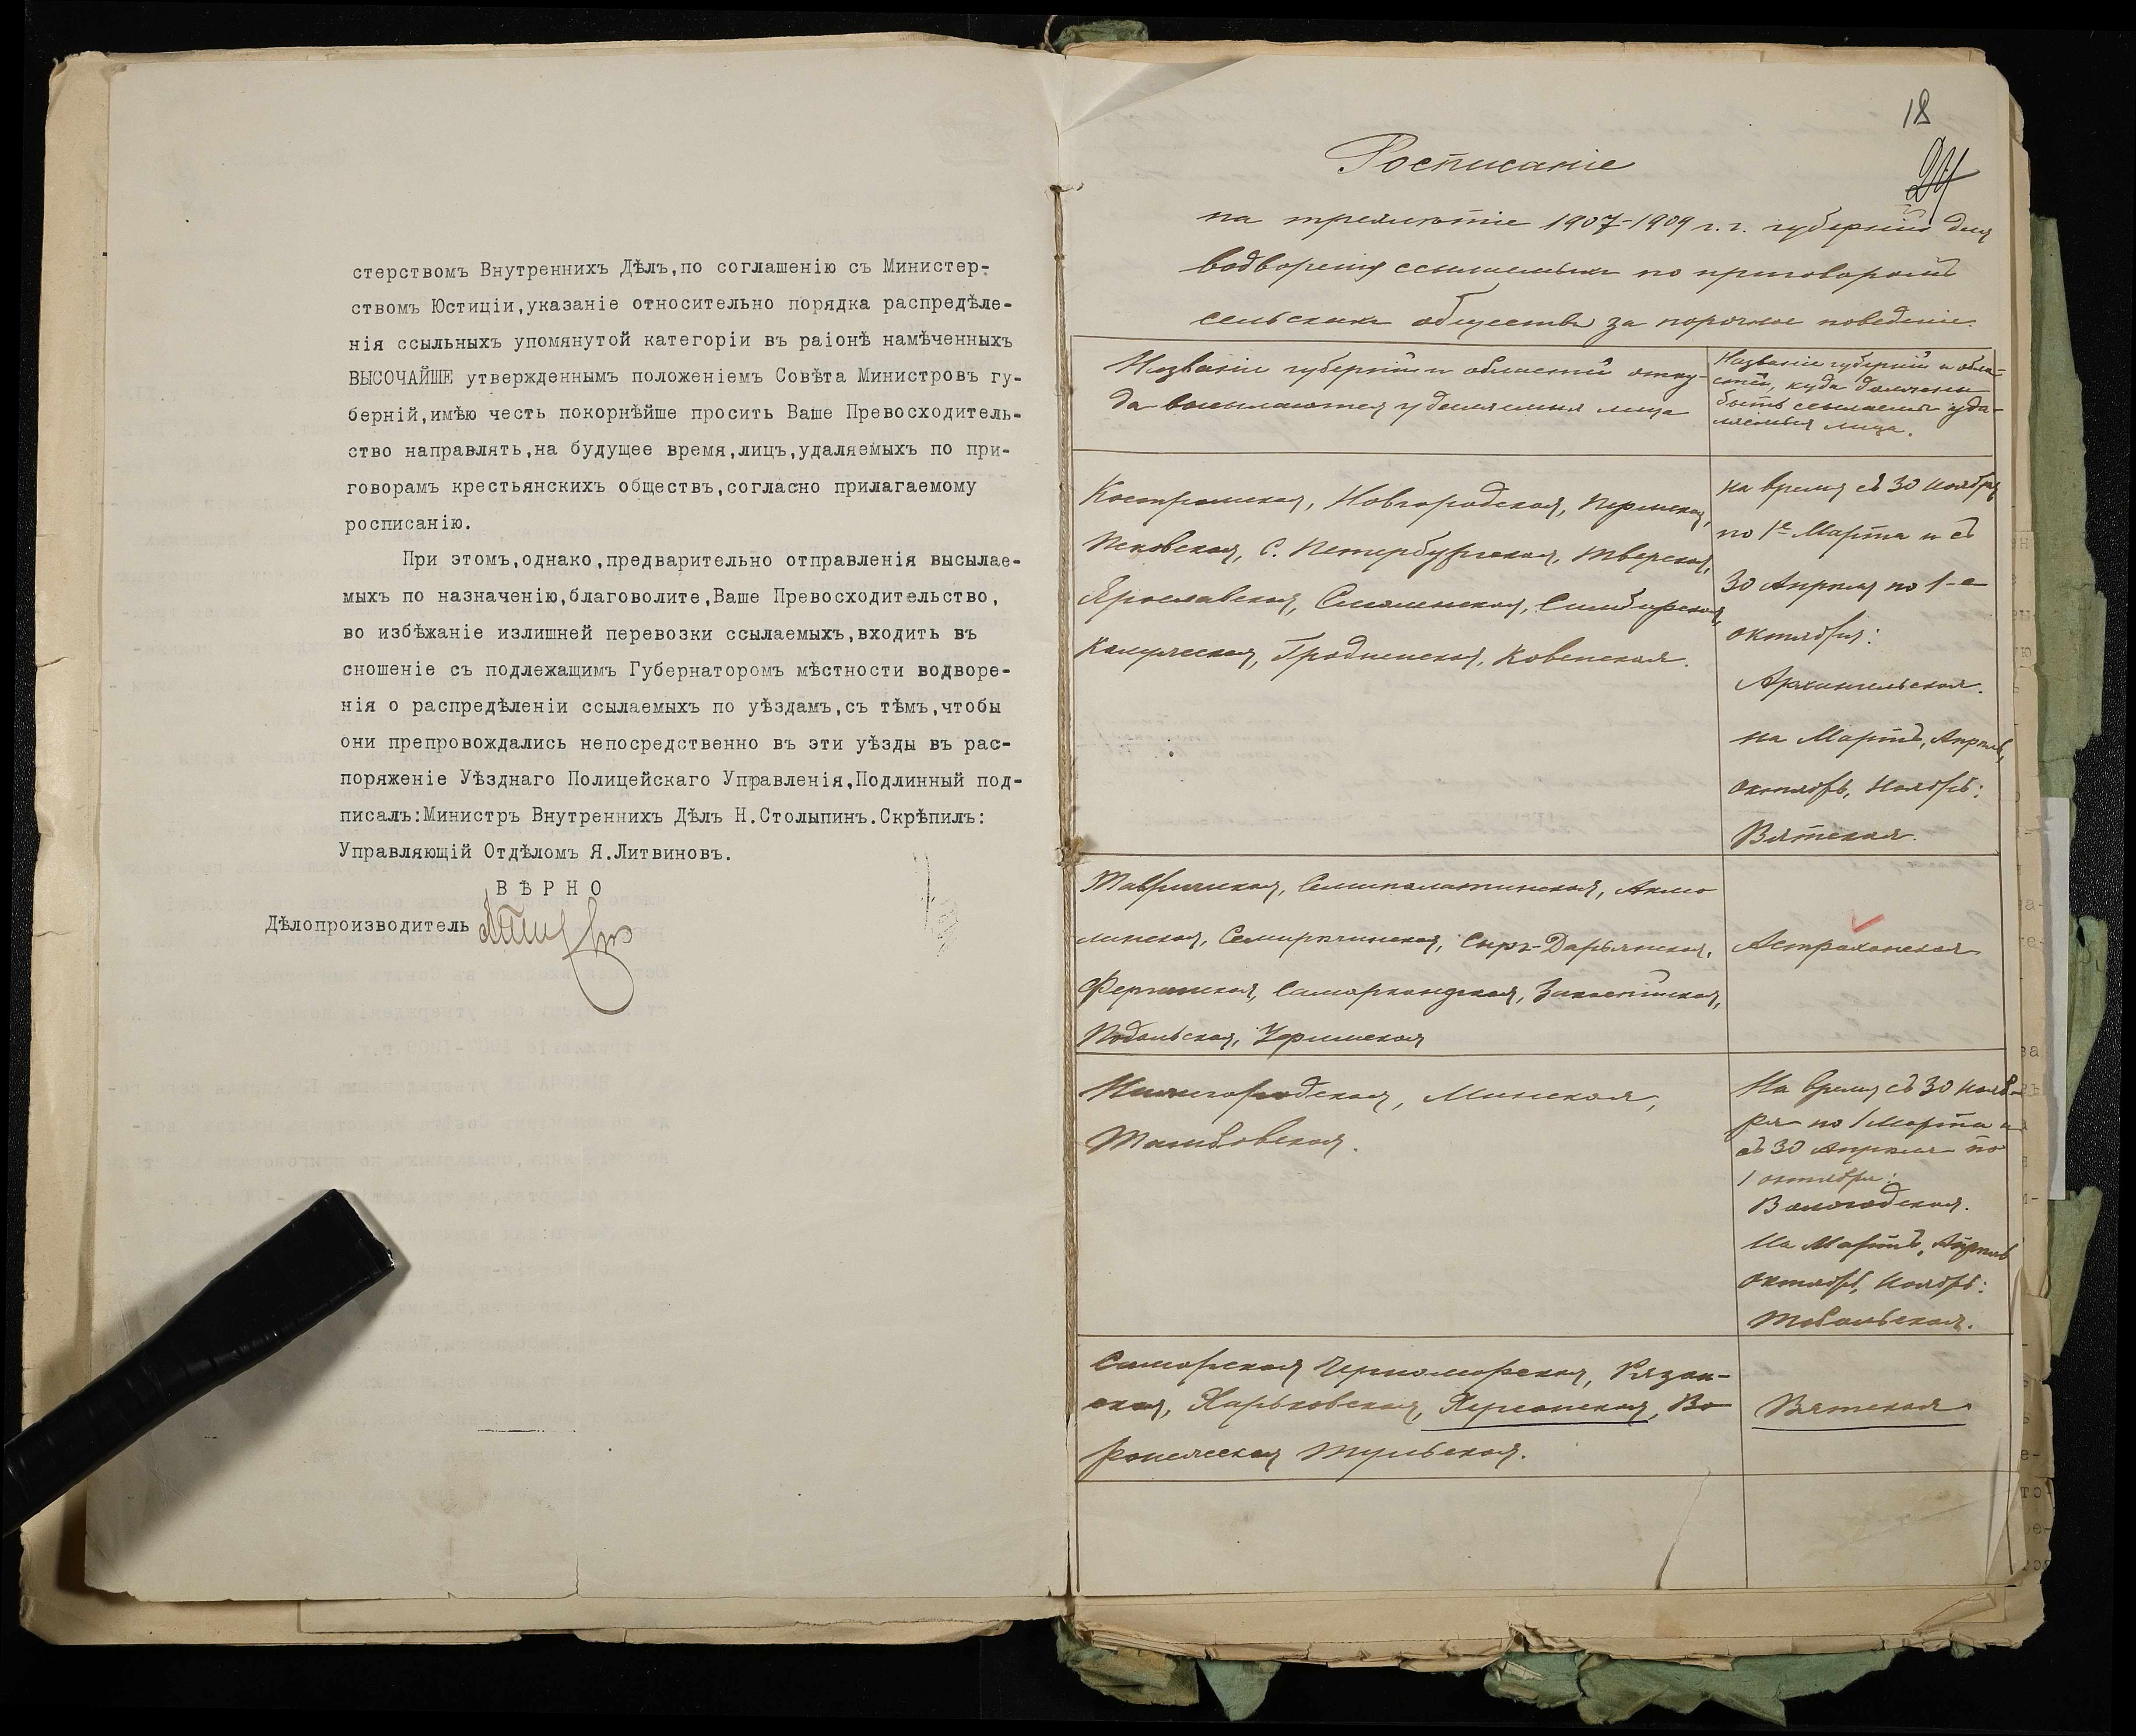 стерствомъ Внутреннихъ Дѣлъ,по соглашенію съ Министер-
ствомъ Юстиціи,указаніе относительно порядка распредѣле-
нія ссыльныхъ упомянутой категоріи въ раіонѣ намѣченныхъ
ВЫСОЧАЙШЕ утвержденнымъ положеніемъ Совѣта Министровъ гу-
берній,имѣю честь покорнѣйше просить Ваше Превосходитель-
ство направлять,на будущее время,лицъ,удаляемыхъ по при-
говорамъ крестьянскихъ обществъ,согласно прилагаемому
росписанію.
При этомъ,однако,предварительно отправленія высылае-
мыхъ по назначенію,благоволите,Ваше Превосходительство,
во избѣжаніе излишней перевозки ссылаемыхъ,входить въ
сношеніе съ подлежащимъ Губернаторомъ мѣстности водворе-
нія о распредѣленіи ссылаемыхъ по уѣздамъ,съ тѣмъ,чтобы
они препровождались непосредственно въ эти уѣзды въ рас-
поряженіе Уѣзднаго Полицейскаго Управленія,Подлинный под-
писалъ:Министръ Внутреннихъ Дѣлъ Н.Столыпинъ.Скрѣпилъ:
Управляющій Отдѣломъ Я.Литвиновъ.
ВѢРНО
Дѣлопроизводитель
18
24
Росписаніе
на трехлѣтіе 1907-1909 г.г. губерній для
водворенія ссылаемыхъ по приговорамъ
сельскихъ обществъ за порочное поведеніе.
Названіе губерній и областей отку-
да высылаются удаляемыя лица
Названіе губерній и обла-
стей, куда должны
быть ссылаемы уда-
ляемыя лица.
Костромская, Новгородская, Пермская,
Псковская, С. Петербургская, Тверская,
Ярославская, Смоленская, Симбирская,
Калужская, Гродненская, Ковенская.
на время съ 30 Ноября
по 1е Марта и съ
30 Апрѣля по 1-е
октября:
Архангельская.
на Мартъ, Апрѣль,
Октябрь, Ноябрь:
Вятская.
Таврическая, Семипалатинская, Акмо
линская, Семирѣчинская, Сыръ-Дарьинская,
Ферганская, Самаркандская, Закаспійская,
Подольская, Уфимская
Астраханская
Нижегородская, Минская,
Тамбовская.
На время съ 30 Нояб-
ря по 1 Марта и
съ 30 Апрѣля по
1 октября:
Вологодская.
На Мартъ, Апрѣль
Октябрь, Ноябрь:
Тобольская.
Самарская Черноморская, Рязан-
ская, Харьковская, Херсонская, Во
ронежская Тульская.
Вятская